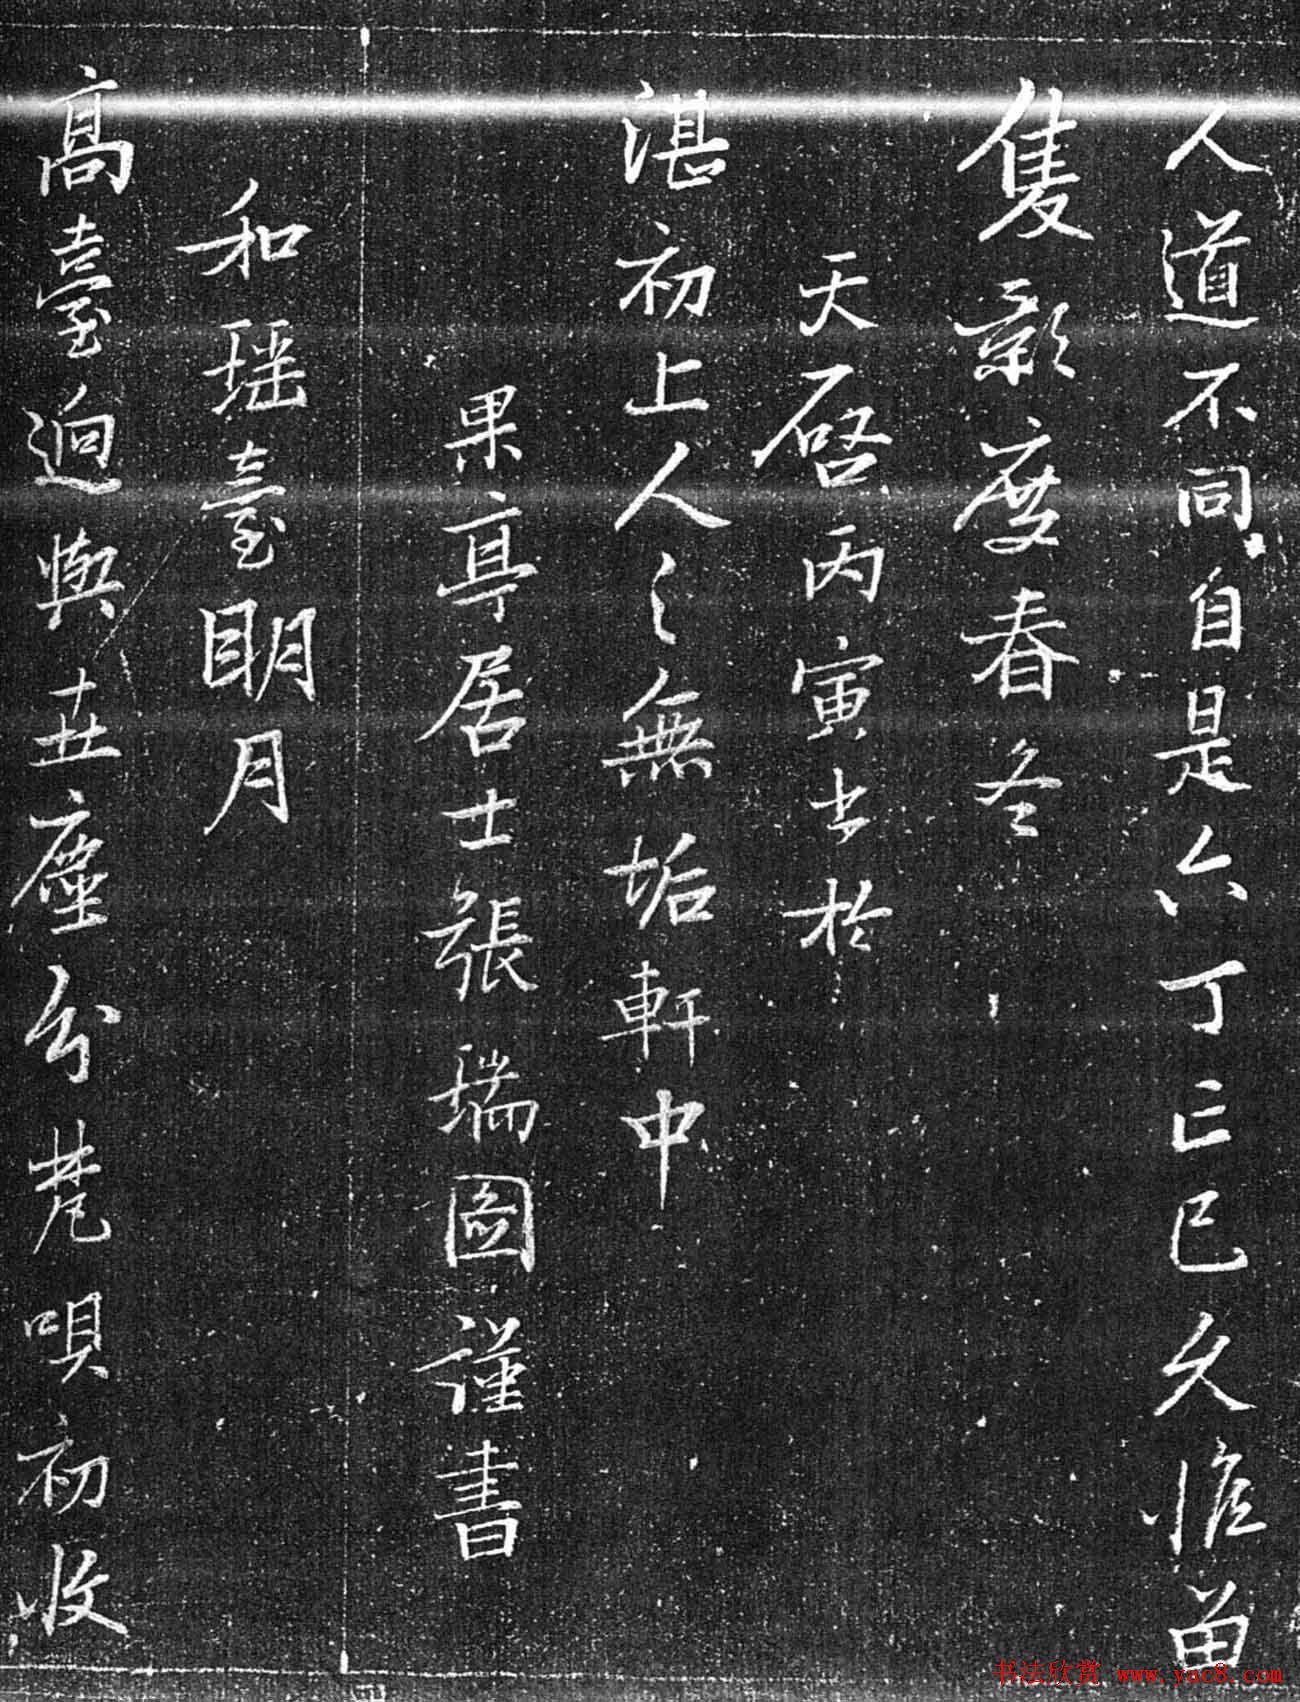 人道不同自是六丁亡已久惟留
隻影度春冬
天啓丙寅書於
湛初上人之無垢軒中
果亭居士張瑞圖謹書
和瑶臺明月
高臺迥與世塵分梵唄初收
书法欣赏 www.yac8.com